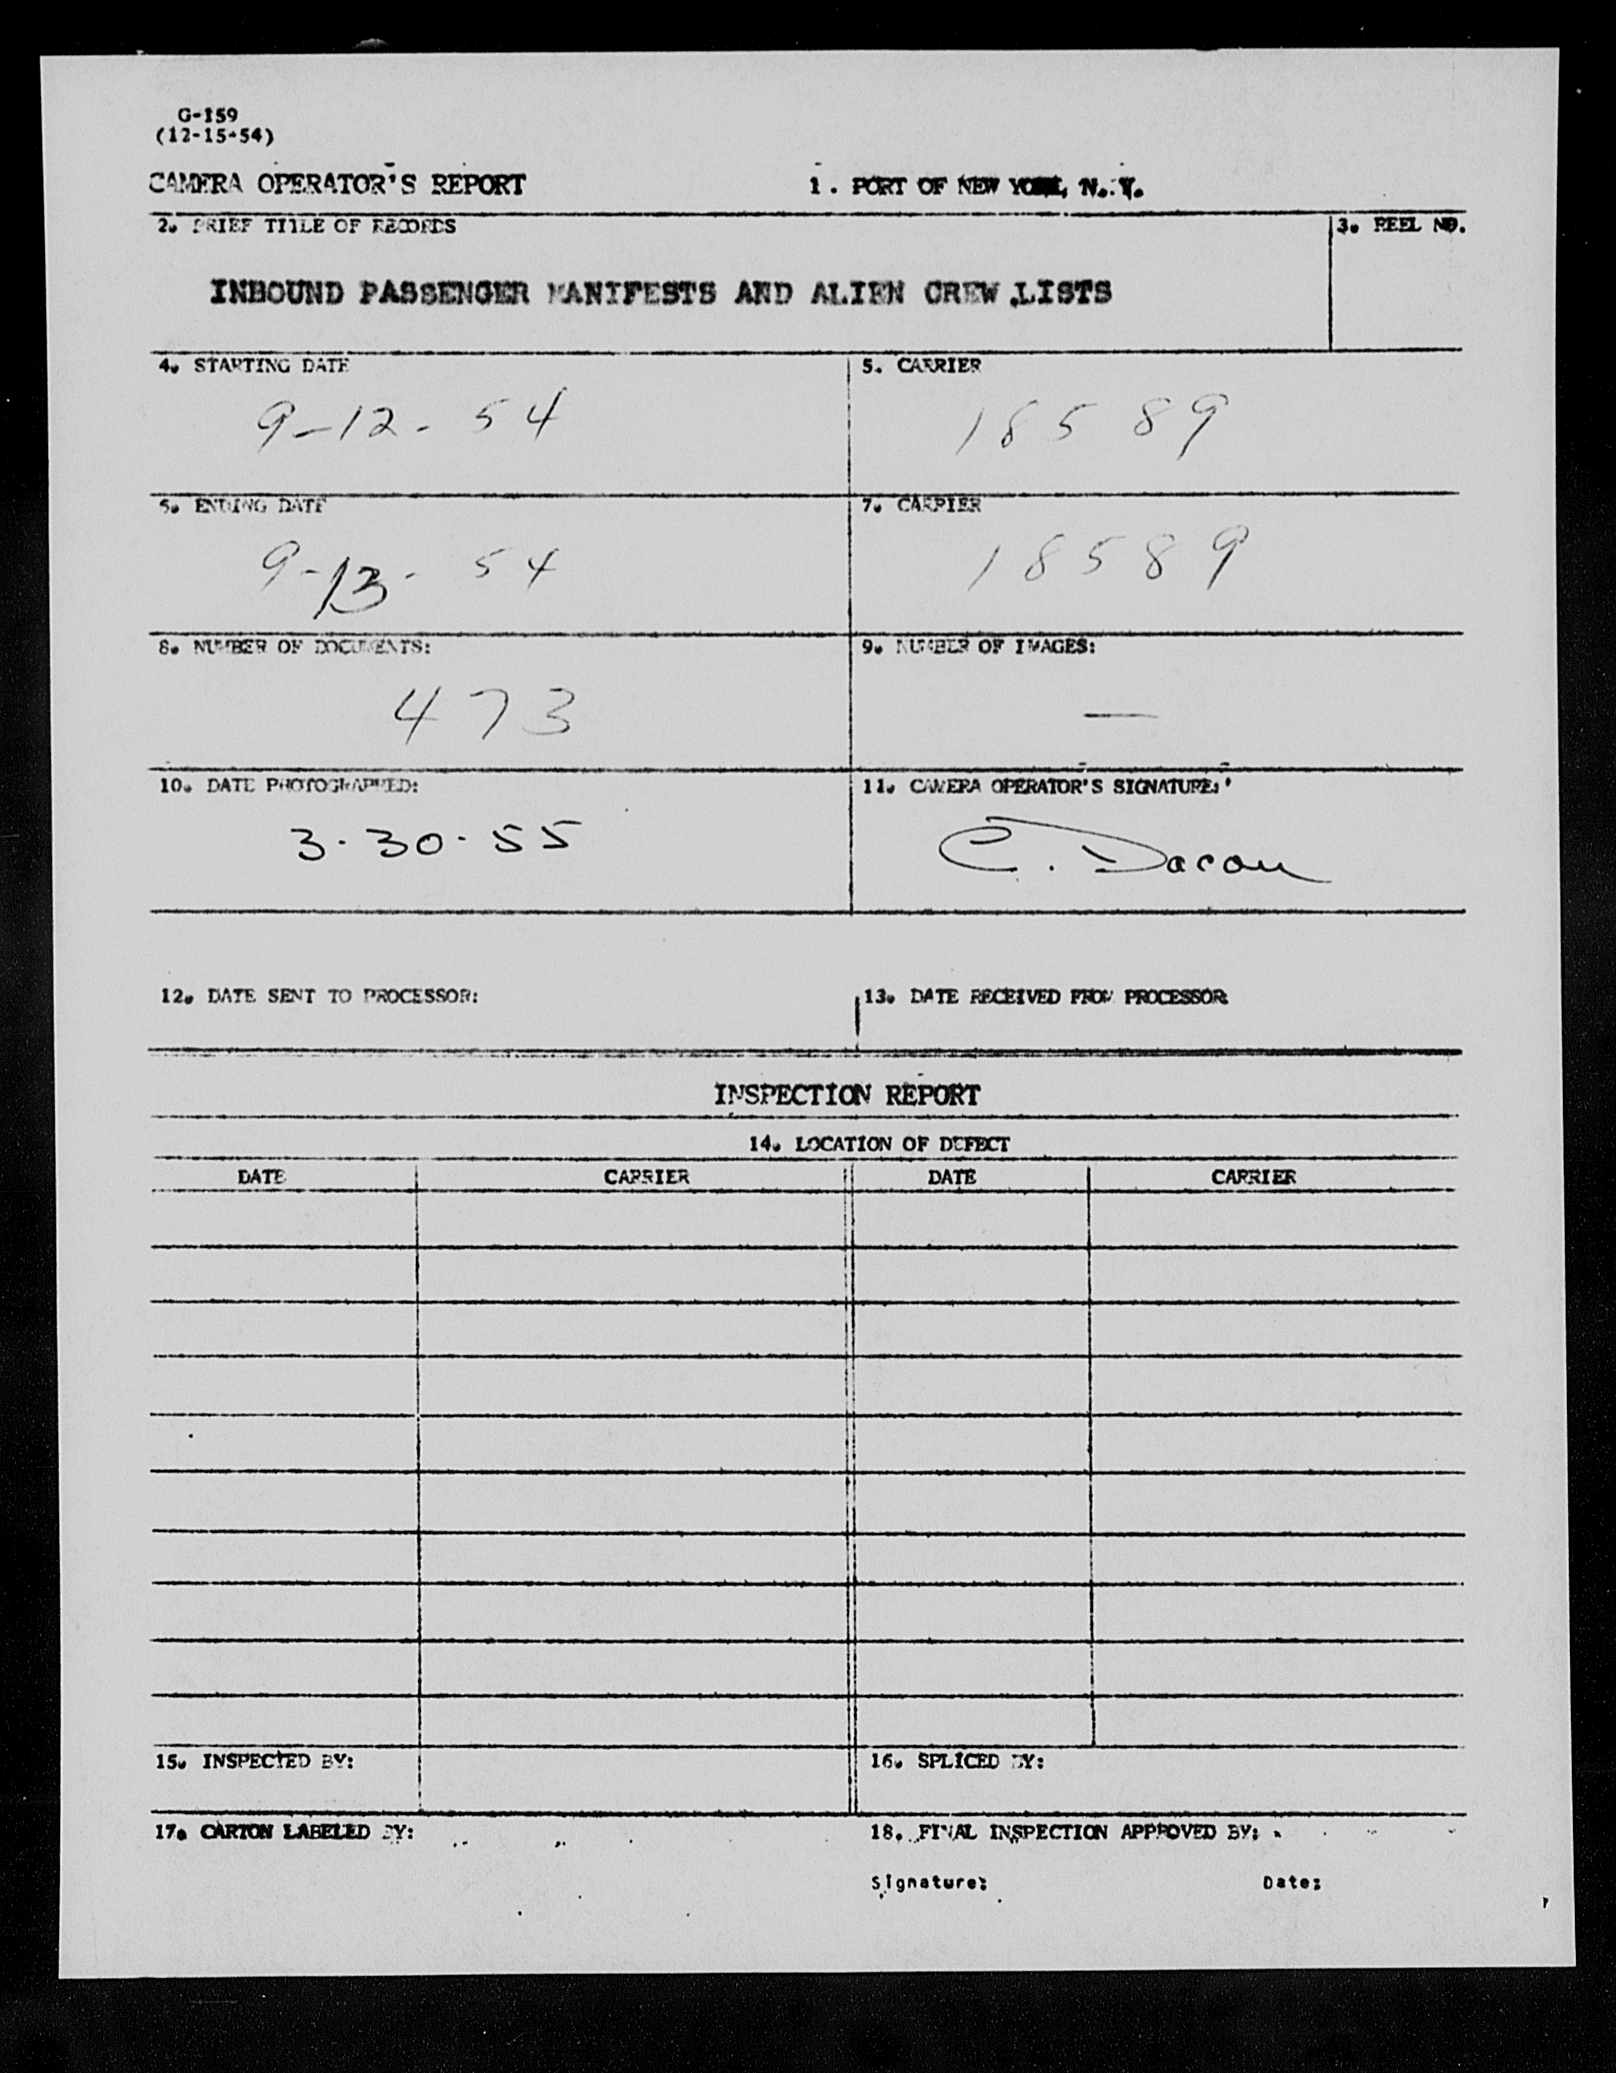 G-159
(12-15-54)
CAMERA OPERATOR'S REPORT 1. PORT OF NEW YORK, N. Y.
2. BRIEF TITLE OF RECORDS 3. REEL NO.
INBOUND PASSENGER MANIFESTS AND ALIEN CREW LISTS
4. STARTING DATE 5. CARRIER
9-12-54 18589
6. ENDING DATE 7. CARRIER
9-13-54 18589
8. NUMBER OF DOCUMENTS: 9. NUMBER OF IMAGES:
473 —
10. DATE PHOTOGRAPHED: 11. CAMERA OPERATOR'S SIGNATURE:
3-30-55 C. Dacou
12. DATE SENT TO PROCESSOR: 13. DATE RECEIVED FROM PROCESSOR
INSPECTION REPORT
14. LOCATION OF DEFECT
DATE CARRIER DATE CARRIER
15. INSPECTED BY: 16. SPLICED BY:
17. CARTON LABELED BY: 18. FINAL INSPECTION APPROVED BY:
Signature: Date: